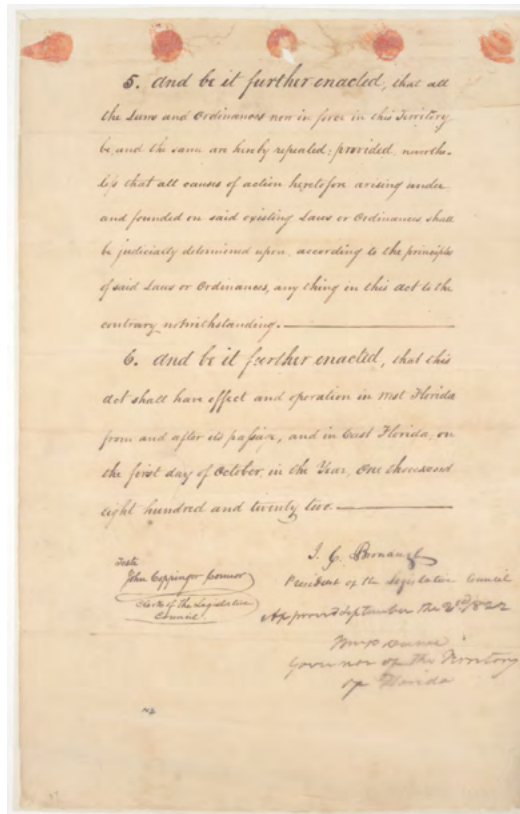 5. And be it further enacted, that all
the Laws and Ordinances now in force in this Territory
be, and the same are hereby repealed; provided, neverthe-
less that all causes of action heretofore arising under
and founded on said existing Laws or Ordinances shall
be judicially determined upon, according to the principles
of said Laws or Ordinances, any thing in this act to the
contrary notwithstanding.
6. And be it further enacted, that this
act shall have effect and operation in West Florida
from and after its passage, and in East Florida, on
the first day of October, in the Year, One thousand
eight hundred and twenty two.
Teste
John Coppinger Connor
Clerk of the Legislative
Council
J. C. Bronaugh
President of the Legislative Council
Approved September the 2nd 1822
Wm P. Duval
Governor of the Territory
of Florida